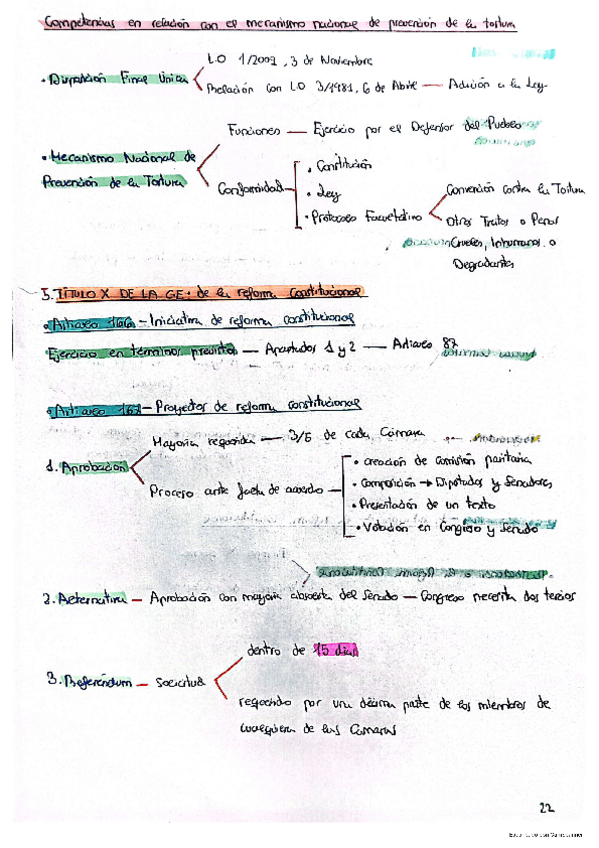 Competencias en relación con el mecanismo nacional de prevención de la tortura
LO 1/2009, 3 de Noviembre
• Disposición Final Única
Relación con LO 3/1981, 6 de Abril — Adición a la Ley
Funciones — Ejercicio por el Defensor del Pueblo
• Mecanismo Nacional de
Prevención de la Tortura
Conformidad
• Constitución
• Ley
• Protocolo Facultativo
Convención contra la Tortura
Otros Tratos o Penas
Crueles, Inhumanos o
Degradantes
5. TÍTULO X DE LA CE: de la reforma constitucional
• Artículo 166 – Iniciativa de reforma constitucional
Ejercicio en términos previstos — Apartados 1 y 2 — Artículo 87
• Artículo 167 – Proyectos de reforma constitucional
Mayoría requerida — 3/5 de cada Cámara
1. Aprobación
Proceso ante falta de acuerdo
• creación de comisión paritaria
• Composición → Diputados y Senadores
• Presentación de un texto
• Votación en Congreso y Senado
2. Alternativa — Aprobación con mayoría absoluta del Senado — Congreso necesita dos tercios
dentro de 15 días
3. Referéndum — Solicitud
requerido por una décima parte de los miembros de
cualquiera de las Cámaras
22